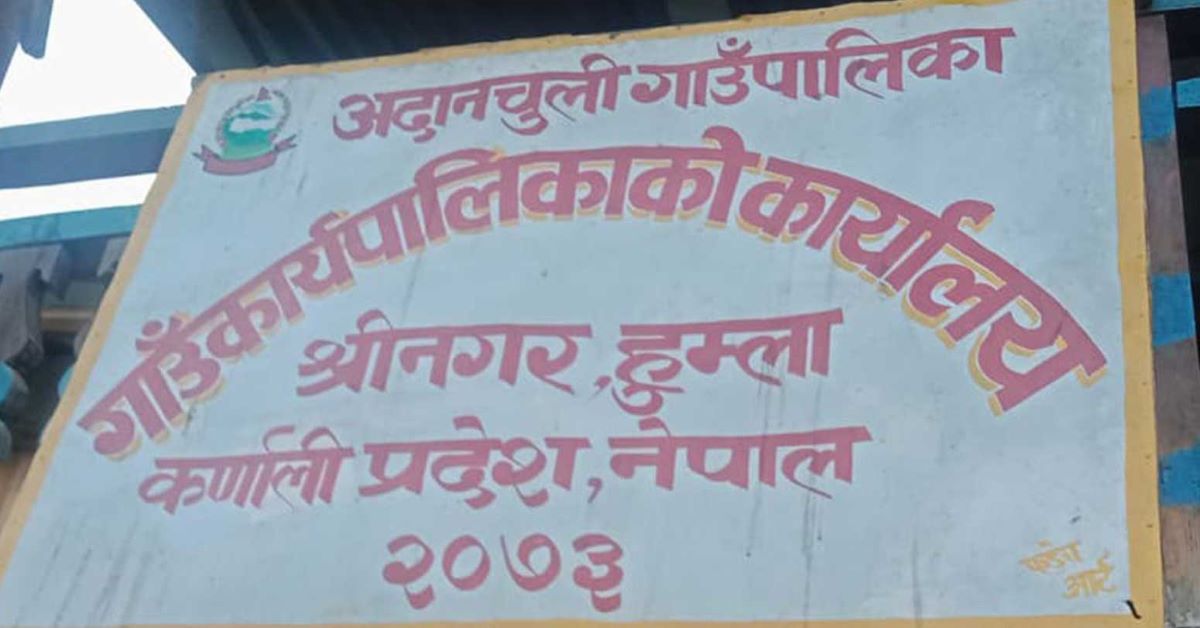 अदानचुली गाउँपालिका
गाउँकार्यपालिकाको कार्यालय
श्रीनगर, हुम्ला
कर्णाली प्रदेश, नेपाल
२०७३
आर्ट